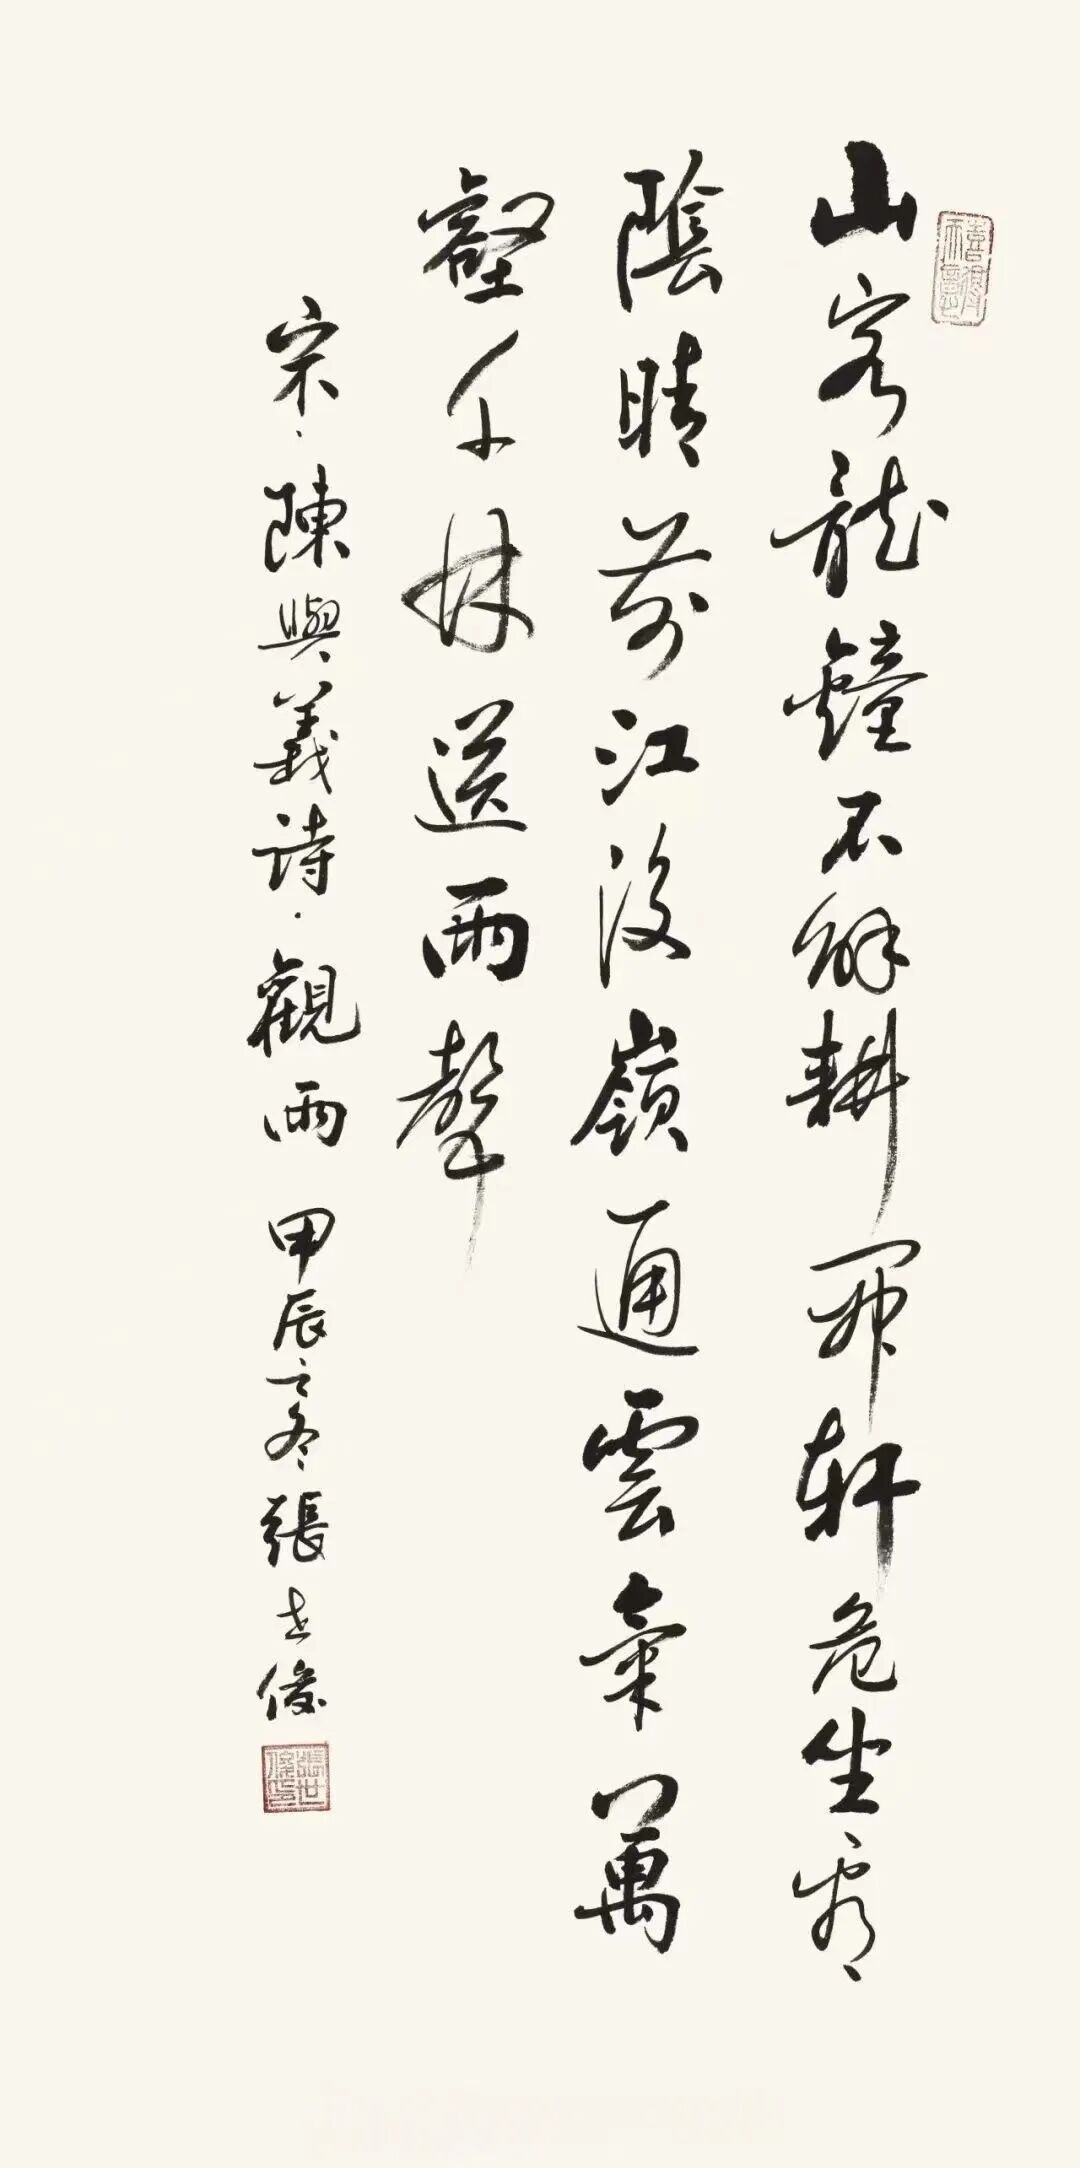 山客龍鐘不解耕開軒危坐看
陰晴前江後嶺通雲氣萬
壑千林送雨聲
宋·陳與義詩·觀雨 甲辰之冬張世俊
張世俊印